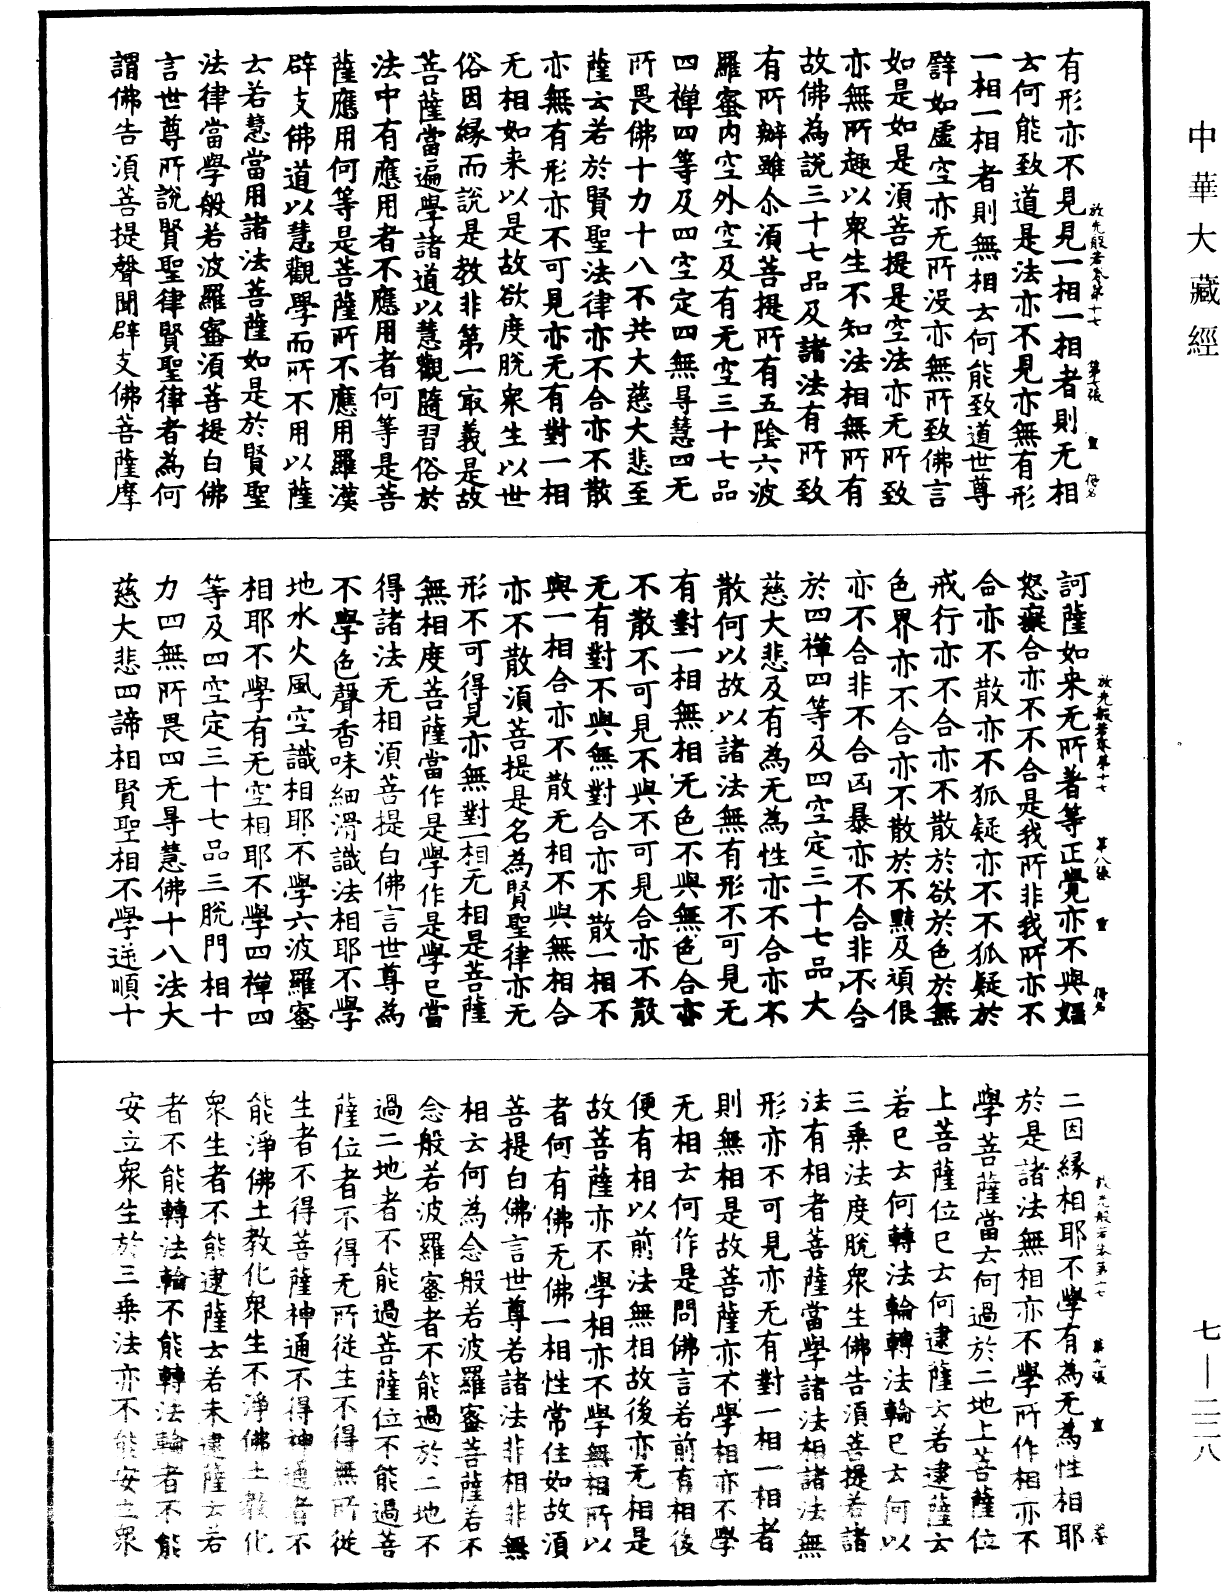 中華大藏經
七—二二八
有形亦不見見一相一相者則无相
云何能致道是法亦不見亦無有形
一相一相者則無相云何能致道世尊
譬如虛空亦无所沒亦無所致佛言
如是如是須菩提是空法亦无所致
亦無所趣以衆生不知法相無所有
故佛為說三十七品及諸法有所致
有所辦雖尒須菩提所有五陰六波
羅蜜内空外空及有无空三十七品
四禪四等及四空定四無㝵慧四无
所畏佛十力十八不共大慈大悲至
薩云若於賢聖法律亦不合亦不散
亦無有形亦不可見亦无有對一相
无相如来以是故欲度脫衆生以世
俗因緣而說是教非第一㝡義是故
菩薩當遍學諸道以慧觀隨習俗於
法中有應用者不應用者何等是菩
薩應用何等是菩薩所不應用羅漢
辟支佛道以慧觀學而所不用以薩
云若慧當用諸法菩薩如是於賢聖
法律當學般若波羅蜜須菩提白佛
言世尊所說賢聖律賢聖律者為何
謂佛告須菩提聲聞辟支佛菩薩摩
放光般若卷第十七　第七張　𡩋
訶薩如来无所著等正覺亦不與婬
怒癡合亦不不合是我所非我所亦不
合亦不散亦不狐疑亦不不狐疑於
戒行亦不合亦不散於欲於色於無
色界亦不合亦不散於不黠及頑佷
亦不合非不合凶暴亦不合非不合
於四禪四等及四空定三十七品大
慈大悲及有為无為性亦不合亦不
散何以故以諸法無有形不可見无
有對一相無相无色不與無色合亦
不散不可見不與不可見合亦不散
无有對不與無對合亦不散一相不
與一相合亦不散无相不與無相合
亦不散須菩提是名為賢聖律亦无
形不可得見亦無對一相无相是菩薩
無相度菩薩當作是學作是學已當
得諸法无相須菩提白佛言世尊為
不學色聲香味細滑識法相耶不學
地水火風空識相耶不學六波羅蜜
相耶不學有无空相耶不學四禪四
等及四空定三十七品三脫門相十
力四無所畏四无㝵慧佛十八法大
慈大悲四諦相賢聖相不學逆順十
放光般若卷第十七　第八張
二因緣相耶不學有為无為性相耶
於是諸法無相亦不學所作相亦不
學菩薩當云何過於二地上菩薩位
上菩薩位已云何逮薩云若逮薩云
若已云何轉法輪轉法輪已云何以
三乘法度脫衆生佛告須菩提若諸
法有相者菩薩當學諸法相諸法無
形亦不可見亦无有對一相一相者
則無相是故菩薩亦不學相亦不學
无相云何作是問佛言若前有相後
便有相以前法無相故後亦无相是
故菩薩亦不學相亦不學無相所以
者何有佛无佛一相性常住如故須
菩提白佛言世尊若諸法非相非無
相云何為念般若波羅蜜菩薩若不
念般若波羅蜜者不能過於二地不
過二地者不能過菩薩位不能過菩
薩位者不得无所從生不得無所從
生者不得菩薩神通不得神通者不
能淨佛土教化衆生不淨佛土教化
衆生者不能逮薩云若未逮薩云若
者不能轉法輪不能轉法輪者不能
安立衆生於三乘法亦不能安立衆
放光般若卷第十七　第九張